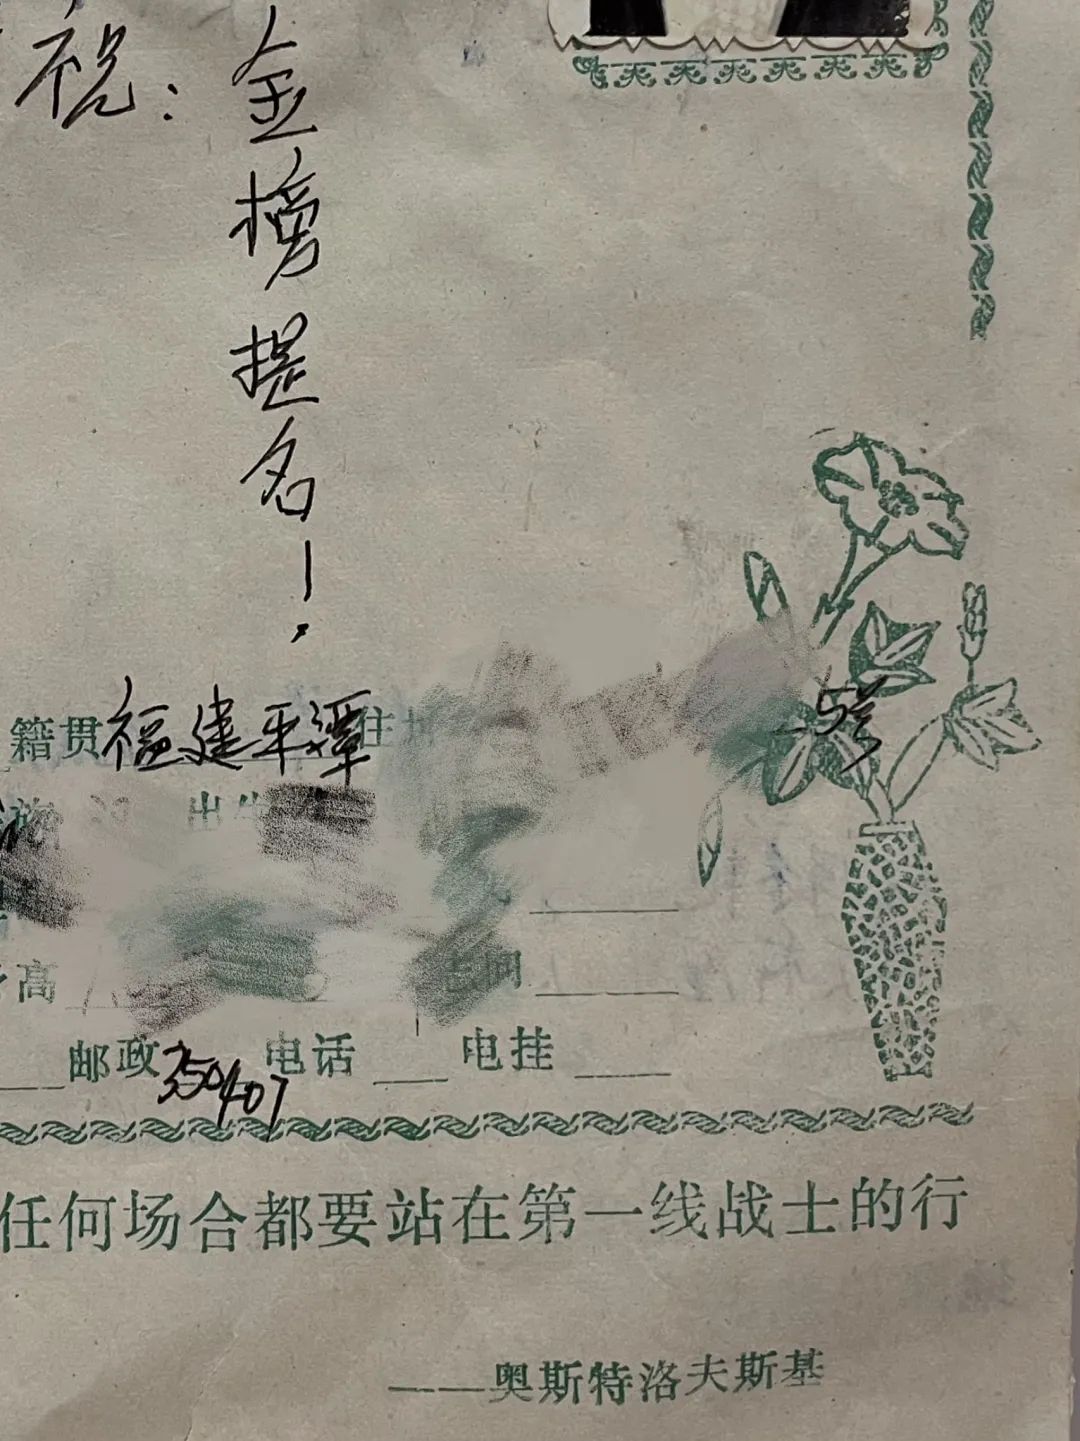 祝：金榜提名！
籍贯福建平潭 住 5号
族 汉 出生
高
邮政350407 电话 电挂
任何场合都要站在第一线战士的行
——奥斯特洛夫斯基